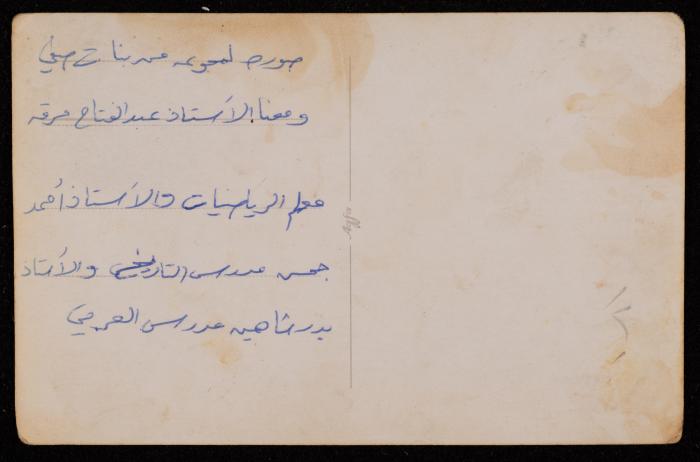 صورة لمجموعة من بنات صفي
ومعنا الأستاذ عبد الفتاح مرقه
معلم الرياضيات والأستاذ أحمد
مدرس التاريخ والأستاذ
بدر شاهين مدرس العربي